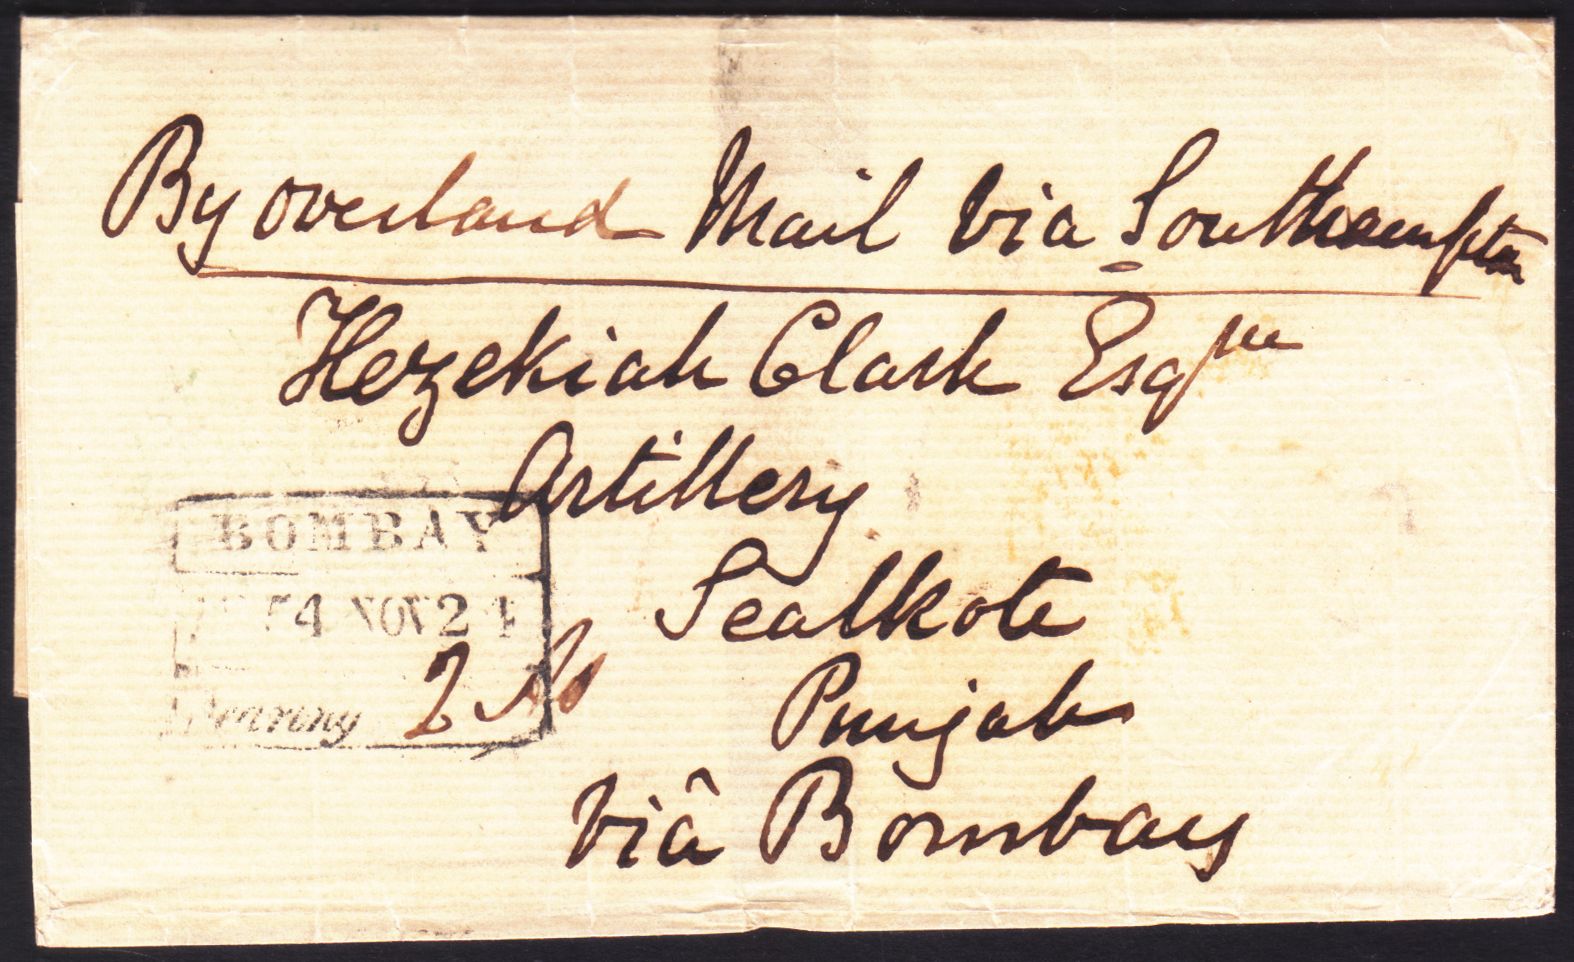 By overland Mail via Southampton
Hezekiah Clark Esqre
Artillery
Sealkote
Punjab
viâ Bombay
BOMBAY
54 NOV 24
Bearing 2 As